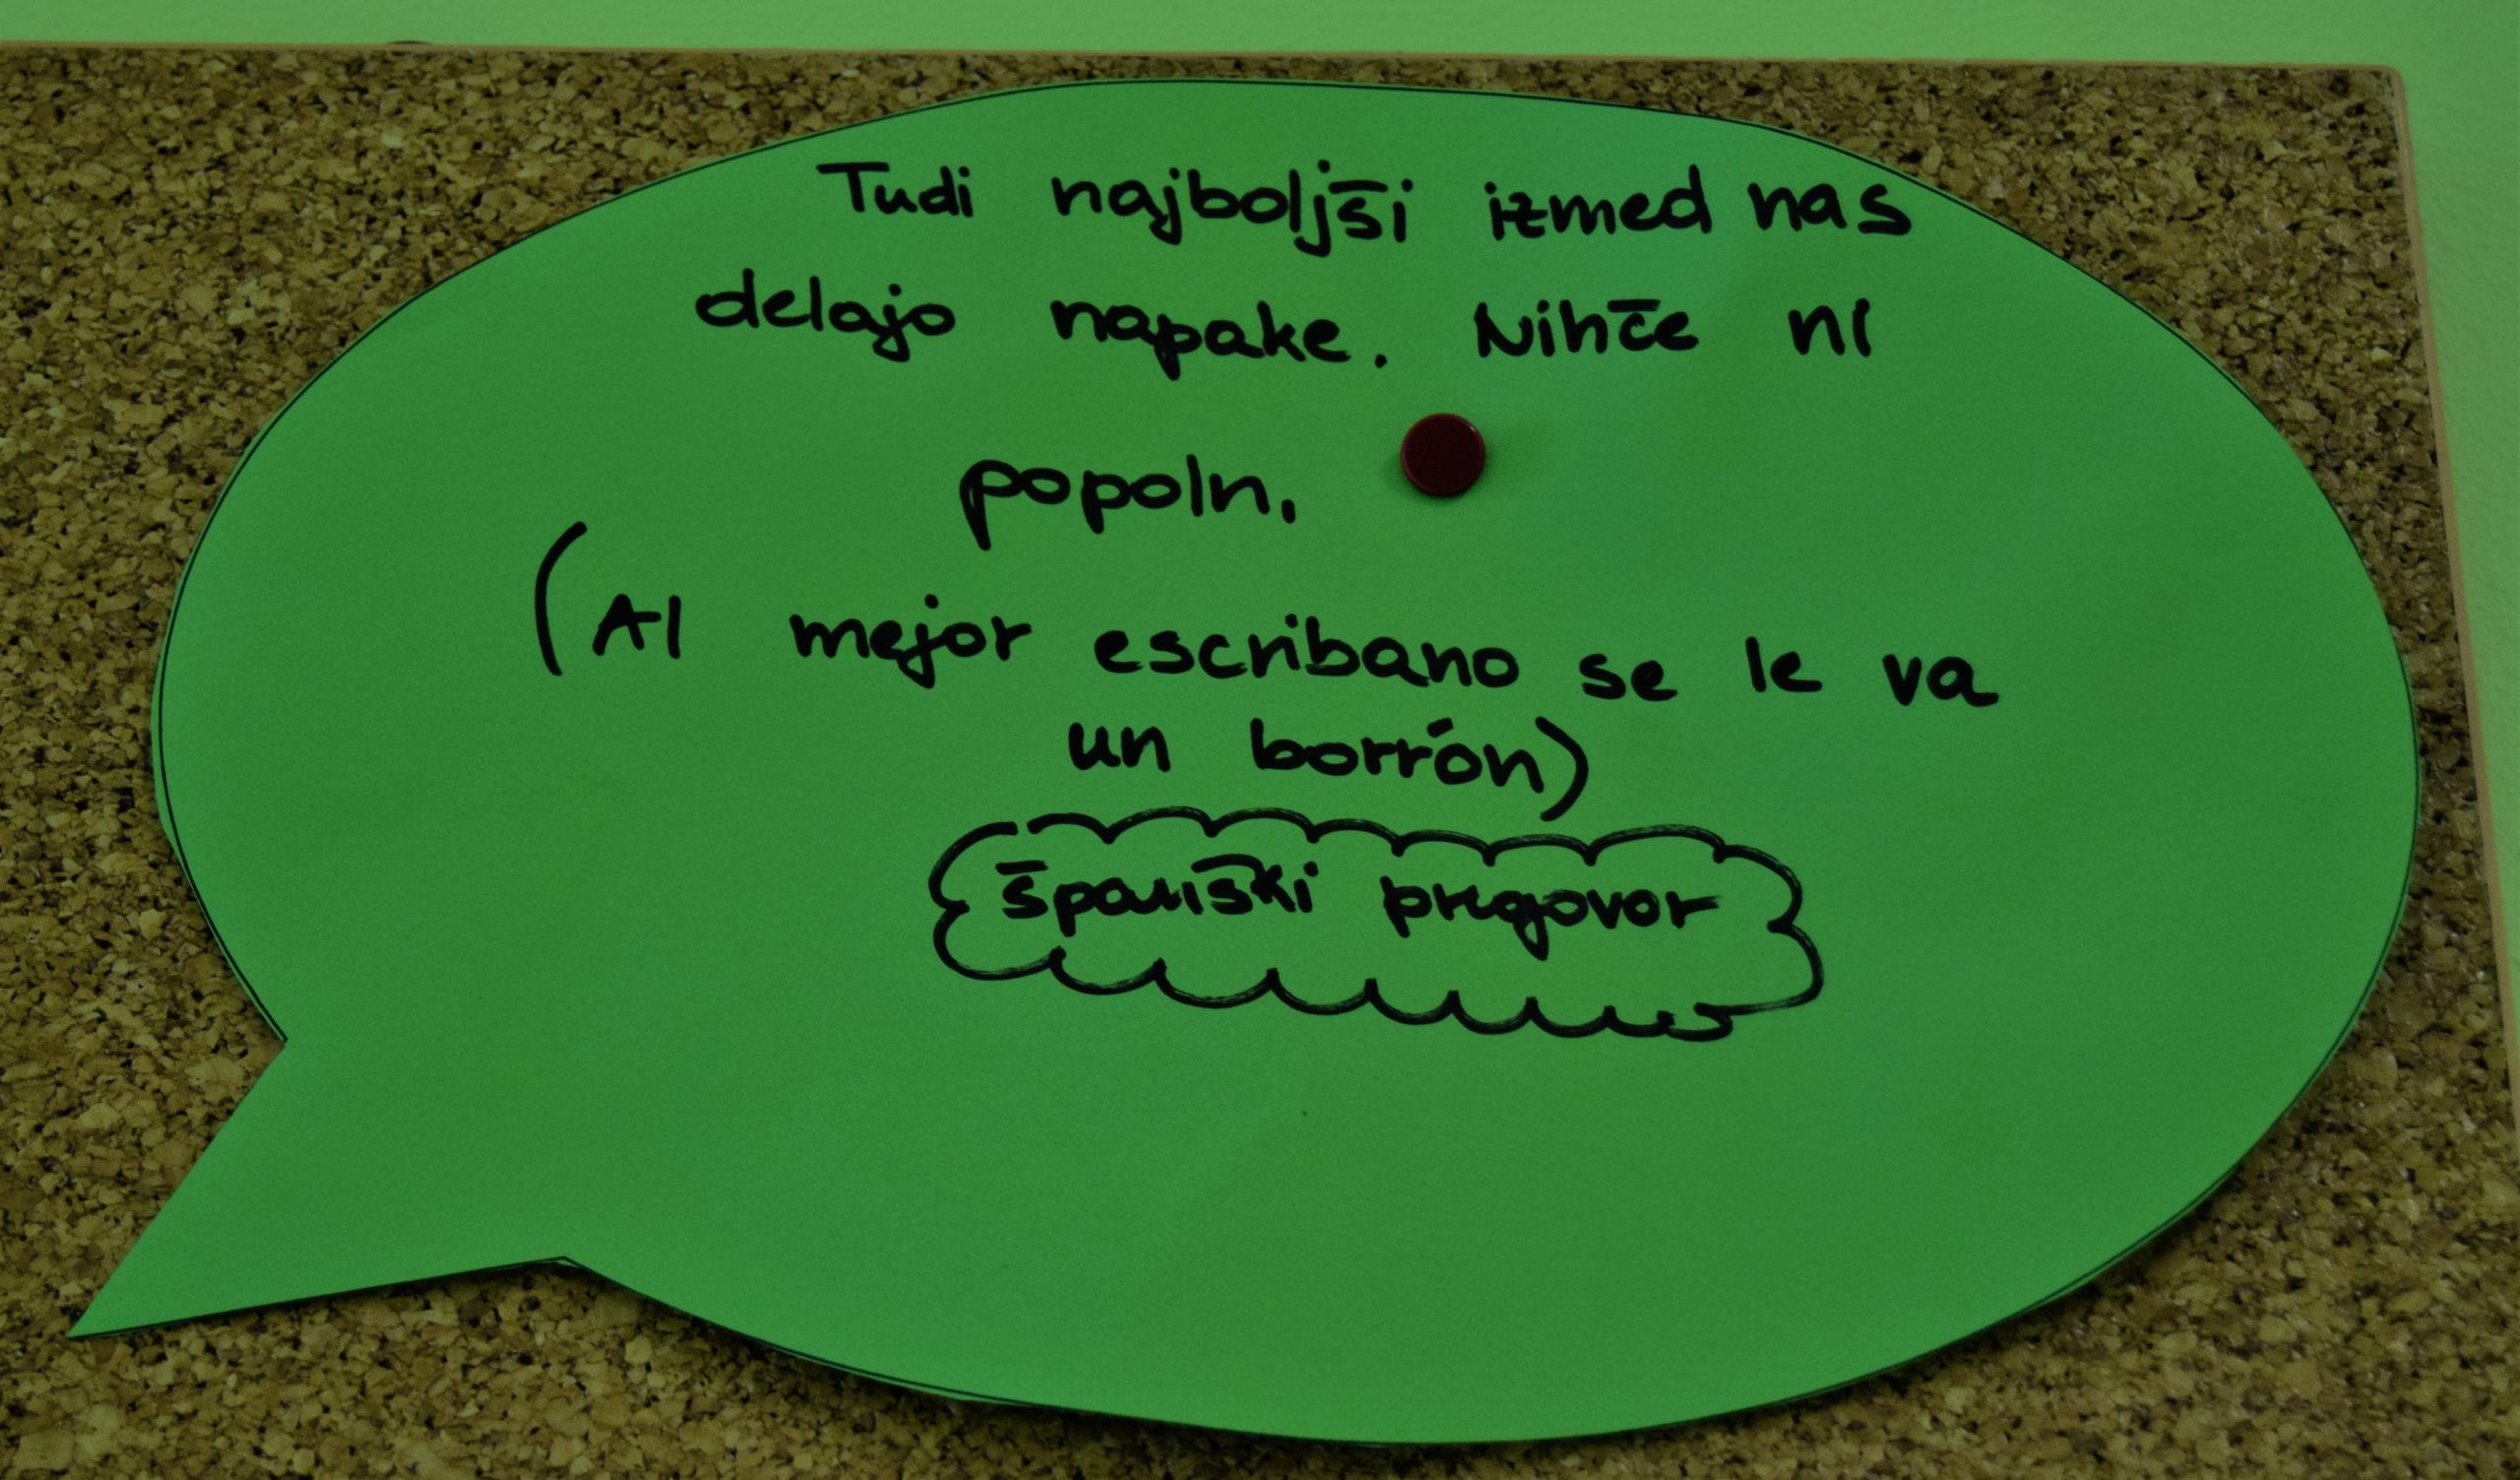 Tudi najboljši izmed nas
delajo napake. Nihče ni
popoln.
(Al mejor escribano se le va
un borrón)
španski pregovor